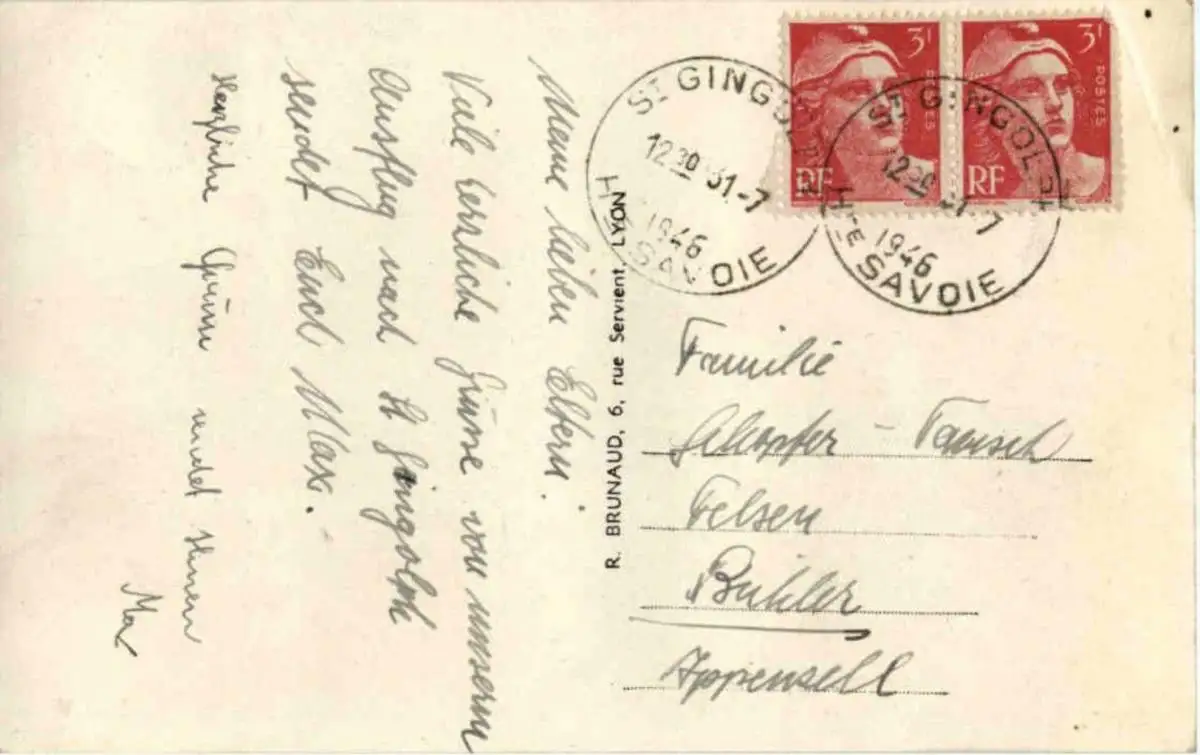 Meine lieben Eltern.
Viele herzliche Grüsse von unserm
Ausflug nach St Gingolph
sendet Euch Max.
Herzliche Grüsse sendet Ihnen
Max
R. BRUNAUD, 6, rue Servient, LYON
3F
POSTES
RF
3F
POSTES
RF
ST GINGOLPH
12 30 31-7
1946
HTE SAVOIE
ST GINGOLPH
12 30 31-7
1946
HTE SAVOIE
Familie
Felsen
Bühler
Appenzell